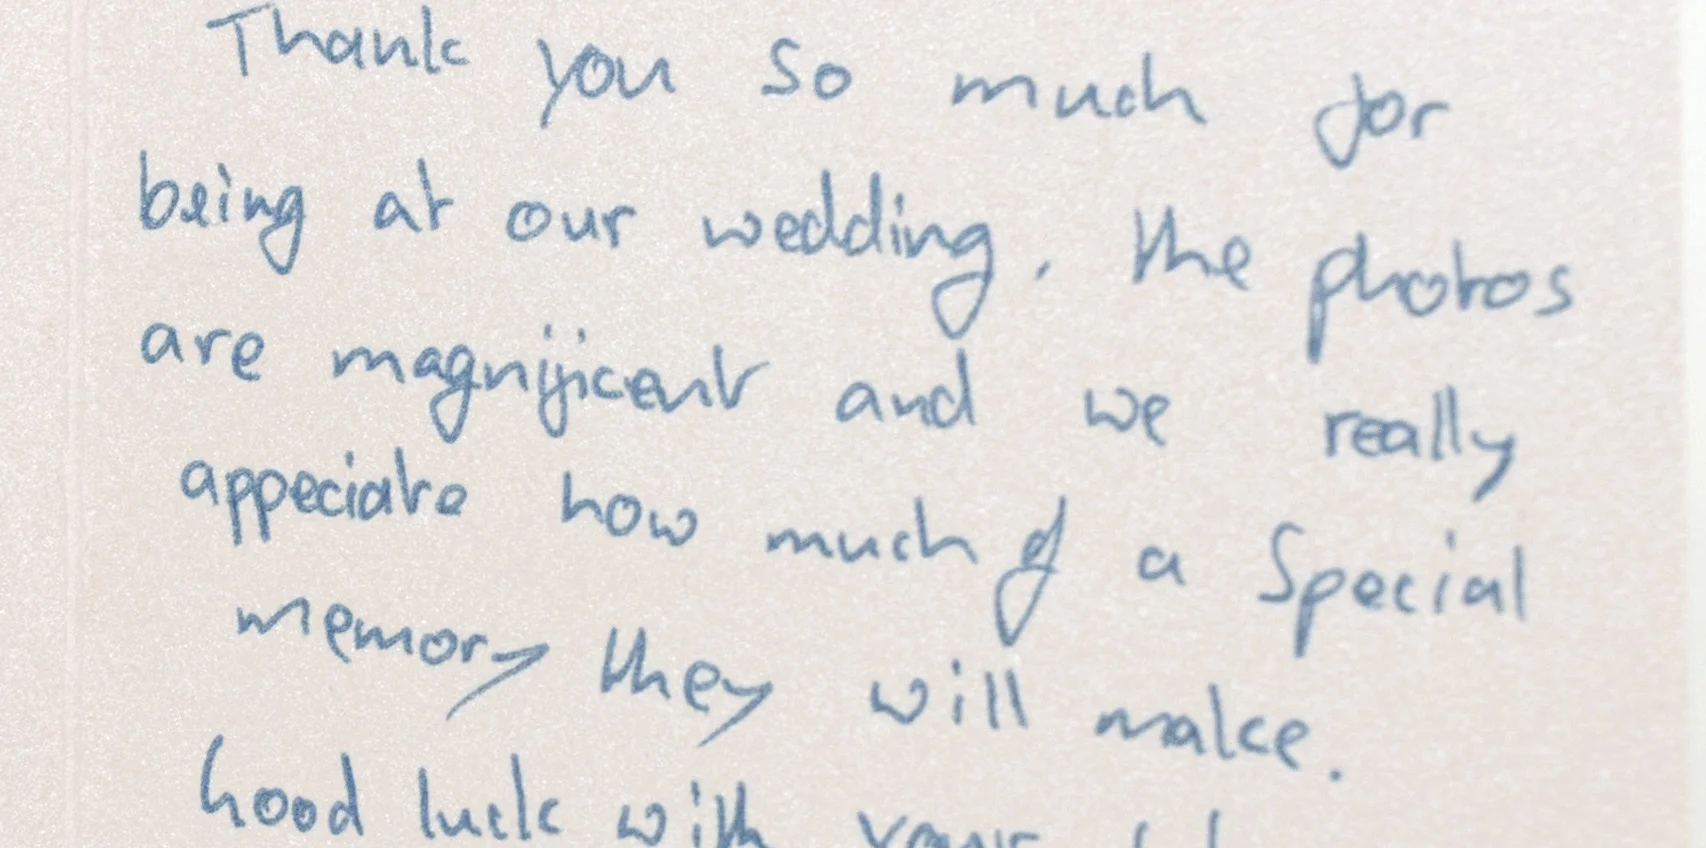 Thank you so much for
being at our wedding, the photos
are magnificent and we really
appeciate how much of a special
memory they will make.
Good luck with your